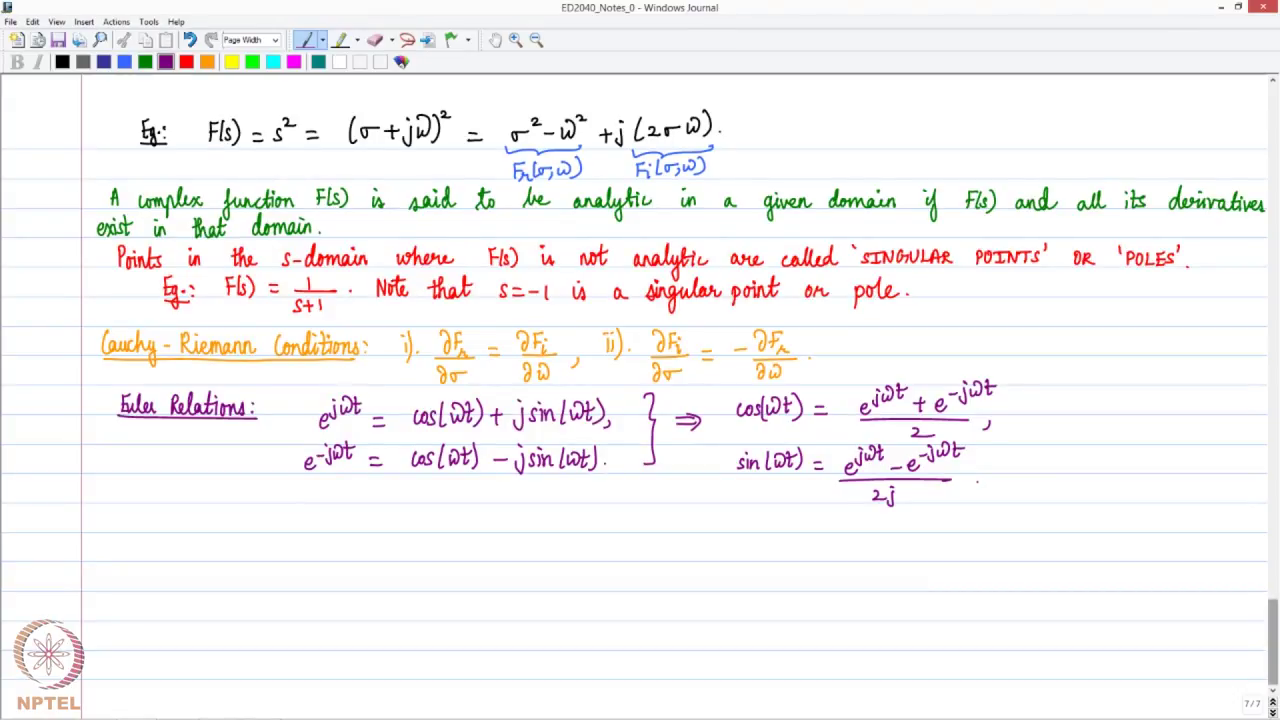 ED2040_Notes_0 - Windows Journal
File Edit View Insert Actions Tools Help
Page Width
B I
Eg.: F(s) = s² = (σ+jω)² = σ²-ω² + j(2σω).
Fr(σ,ω) Fi(σ,ω)
A complex function F(s) is said to be analytic in a given domain if F(s) and all its derivatives
exist in that domain.
Points in the s-domain where F(s) is not analytic are called 'SINGULAR POINTS' OR 'POLES'.
Eg.: F(s) = 1/(s+1). Note that s=-1 is a singular point or pole.
Cauchy-Riemann Conditions: i). ∂Fr/∂σ = ∂Fi/∂ω, ii). ∂Fi/∂σ = -∂Fr/∂ω.
Euler Relations: e^{jωt} = cos(ωt) + jsin(ωt), ⇒ cos(ωt) = (e^{jωt} + e^{-jωt})/2,
e^{-jωt} = cos(ωt) - jsin(ωt). sin(ωt) = (e^{jωt} - e^{-jωt})/2j.
NPTEL
7/7